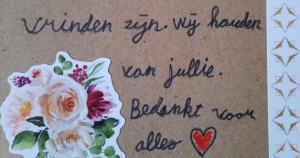 vrinden zÿn. Wÿ houden
van jullie.
Bedankt voor
alles